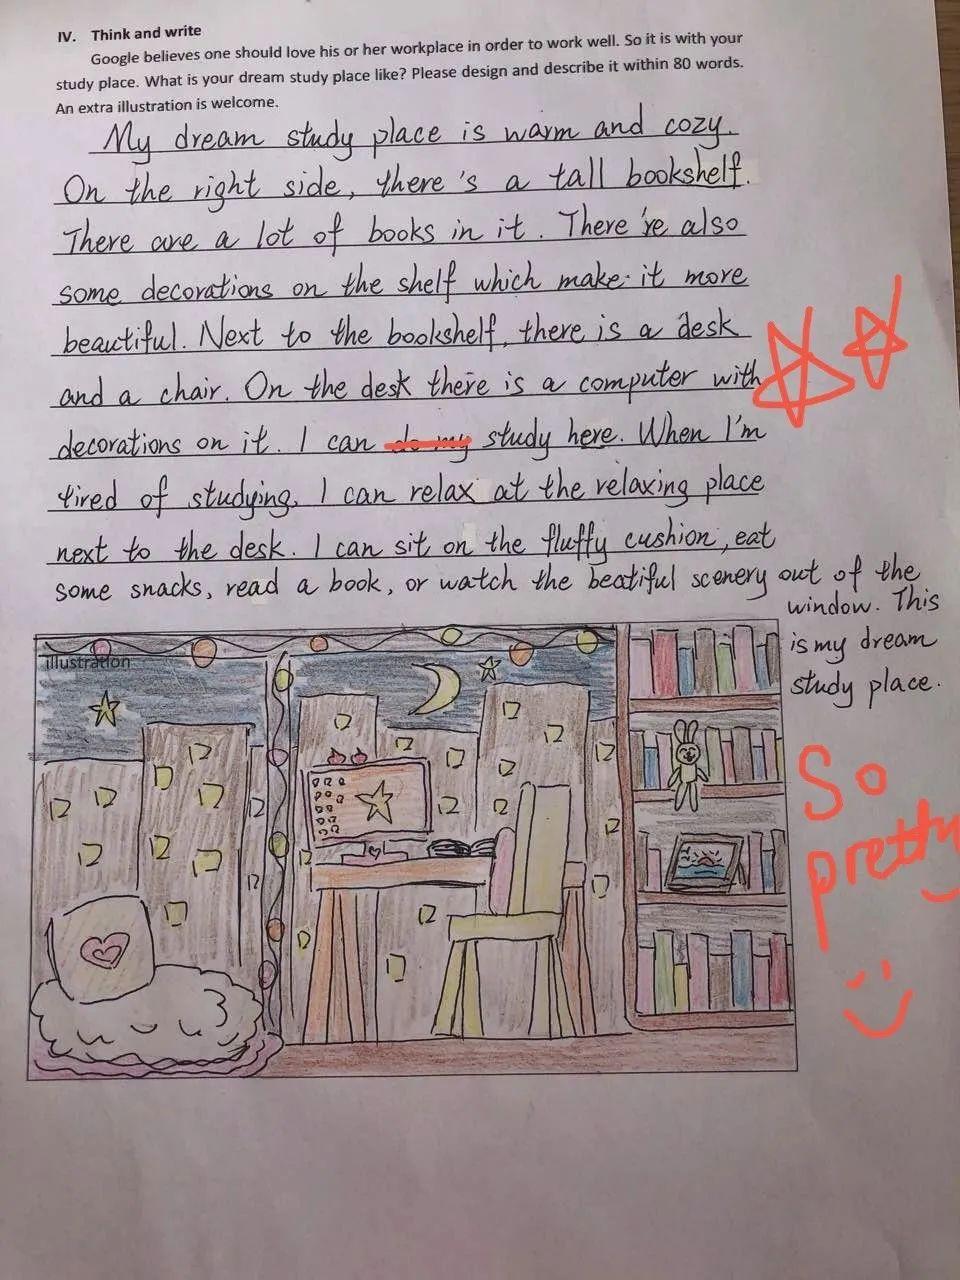 IV. Think and write
Google believes one should love his or her workplace in order to work well. So it is with your
study place. What is your dream study place like? Please design and describe it within 80 words.
An extra illustration is welcome.
My dream study place is warm and cozy.
On the right side, there's a tall bookshelf.
There are a lot of books in it. There're also
some decorations on the shelf which make it more
beautiful. Next to the bookshelf, there is a desk
and a chair. On the desk there is a computer with
decorations on it. I can do my study here. When I'm
tired of studying, I can relax at the relaxing place
next to the desk. I can sit on the fluffy cushion, eat
some snacks, read a book, or watch the beatiful scenery out of the
window. This
is my dream
study place.
illustration
So
pretty